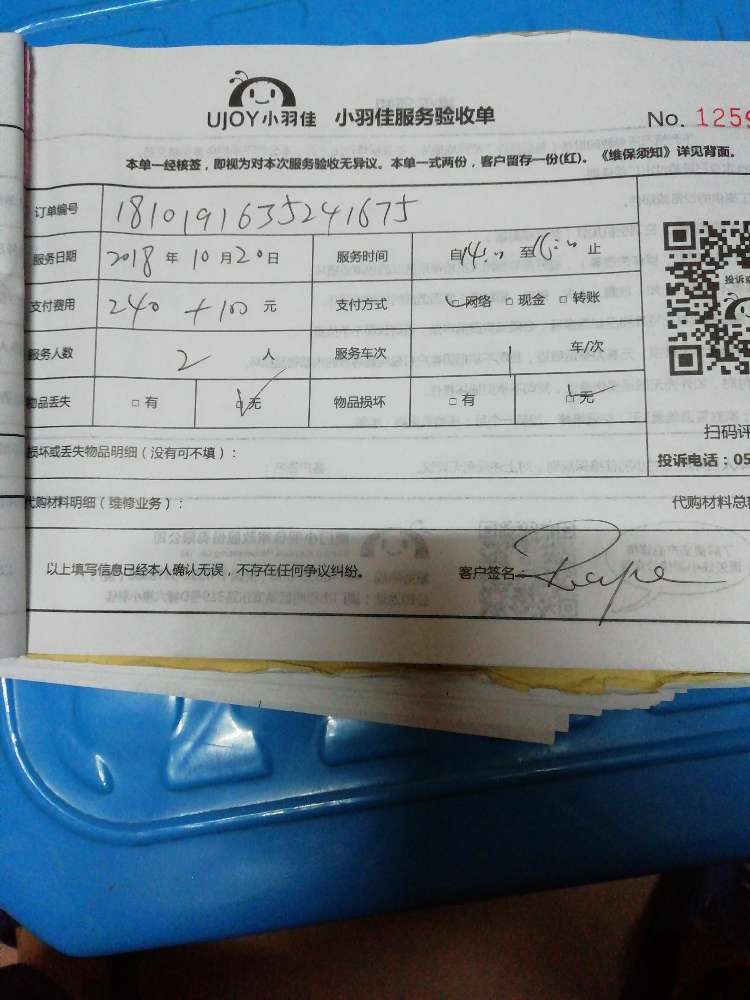 UJOY小羽佳 小羽佳服务验收单 No. 1259
本单一经核签，即视为对本次服务验收无异议。本单一式两份，客户留存一份(红)。《维保须知》详见背面。
订单编号 1810191635241675
服务日期 2018 年 10 月 20 日 服务时间 自 14:00 至 16:00 止
支付费用 240 + 100 元 支付方式 ☑网络 □现金 □转账
服务人数 2 人 服务车次 1 车/次
物品丢失 □有 ☑无 物品损坏 □有 ☑无
扫码评
损坏或丢失物品明细（没有可不填）： 投诉电话：05
代购材料明细（维修业务）： 代购材料总
以上填写信息已经本人确认无误，不存在任何争议纠纷。 客户签名：